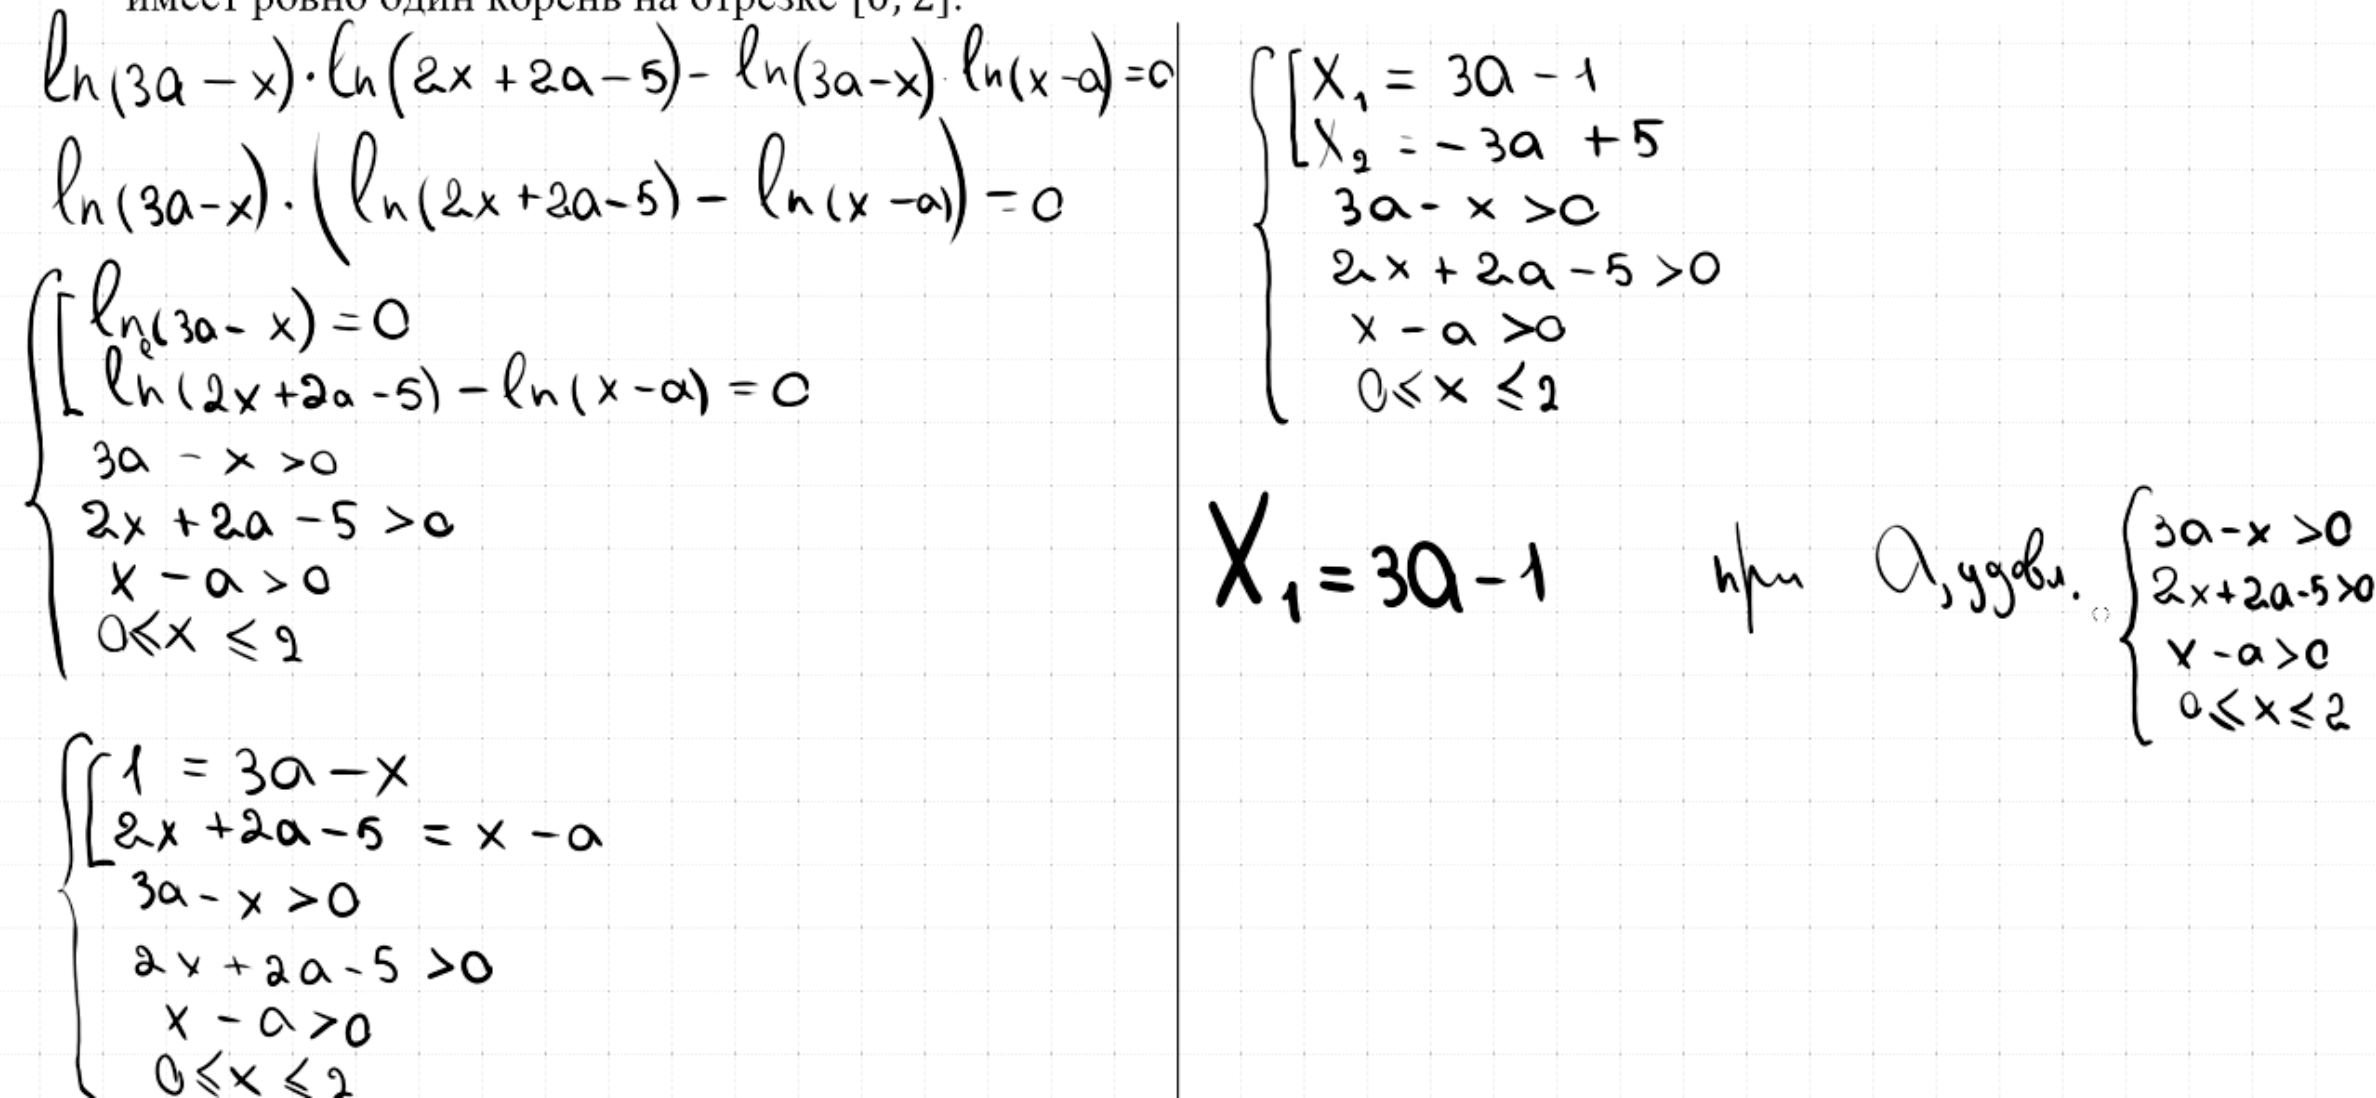 имеет ровно один корень на отрезке [0; 2].
ln(3a − x)·ln(2x + 2a − 5) − ln(3a−x)·ln(x−a)=0
ln(3a−x)·(ln(2x+2a−5) − ln(x−a))=0
ln(3a−x)=0
ln(2x+2a−5)−ln(x−a)=0
3a − x >0
2x +2a −5 >0
x − a > 0
0⩽x ⩽ 2
1 = 3a−x
2x +2a−5 = x −a
3a − x >0
2x+2a−5 >0
x − a >0
0⩽x ⩽ 2
X₁ = 3a −1
X₂ = −3a +5
3a − x >0
2x + 2a −5 >0
x − a >0
0⩽ x ⩽2
X₁=3a−1 при a, удовл.
3a−x >0
2x+2a−5>0
x −a>0
0⩽x⩽2